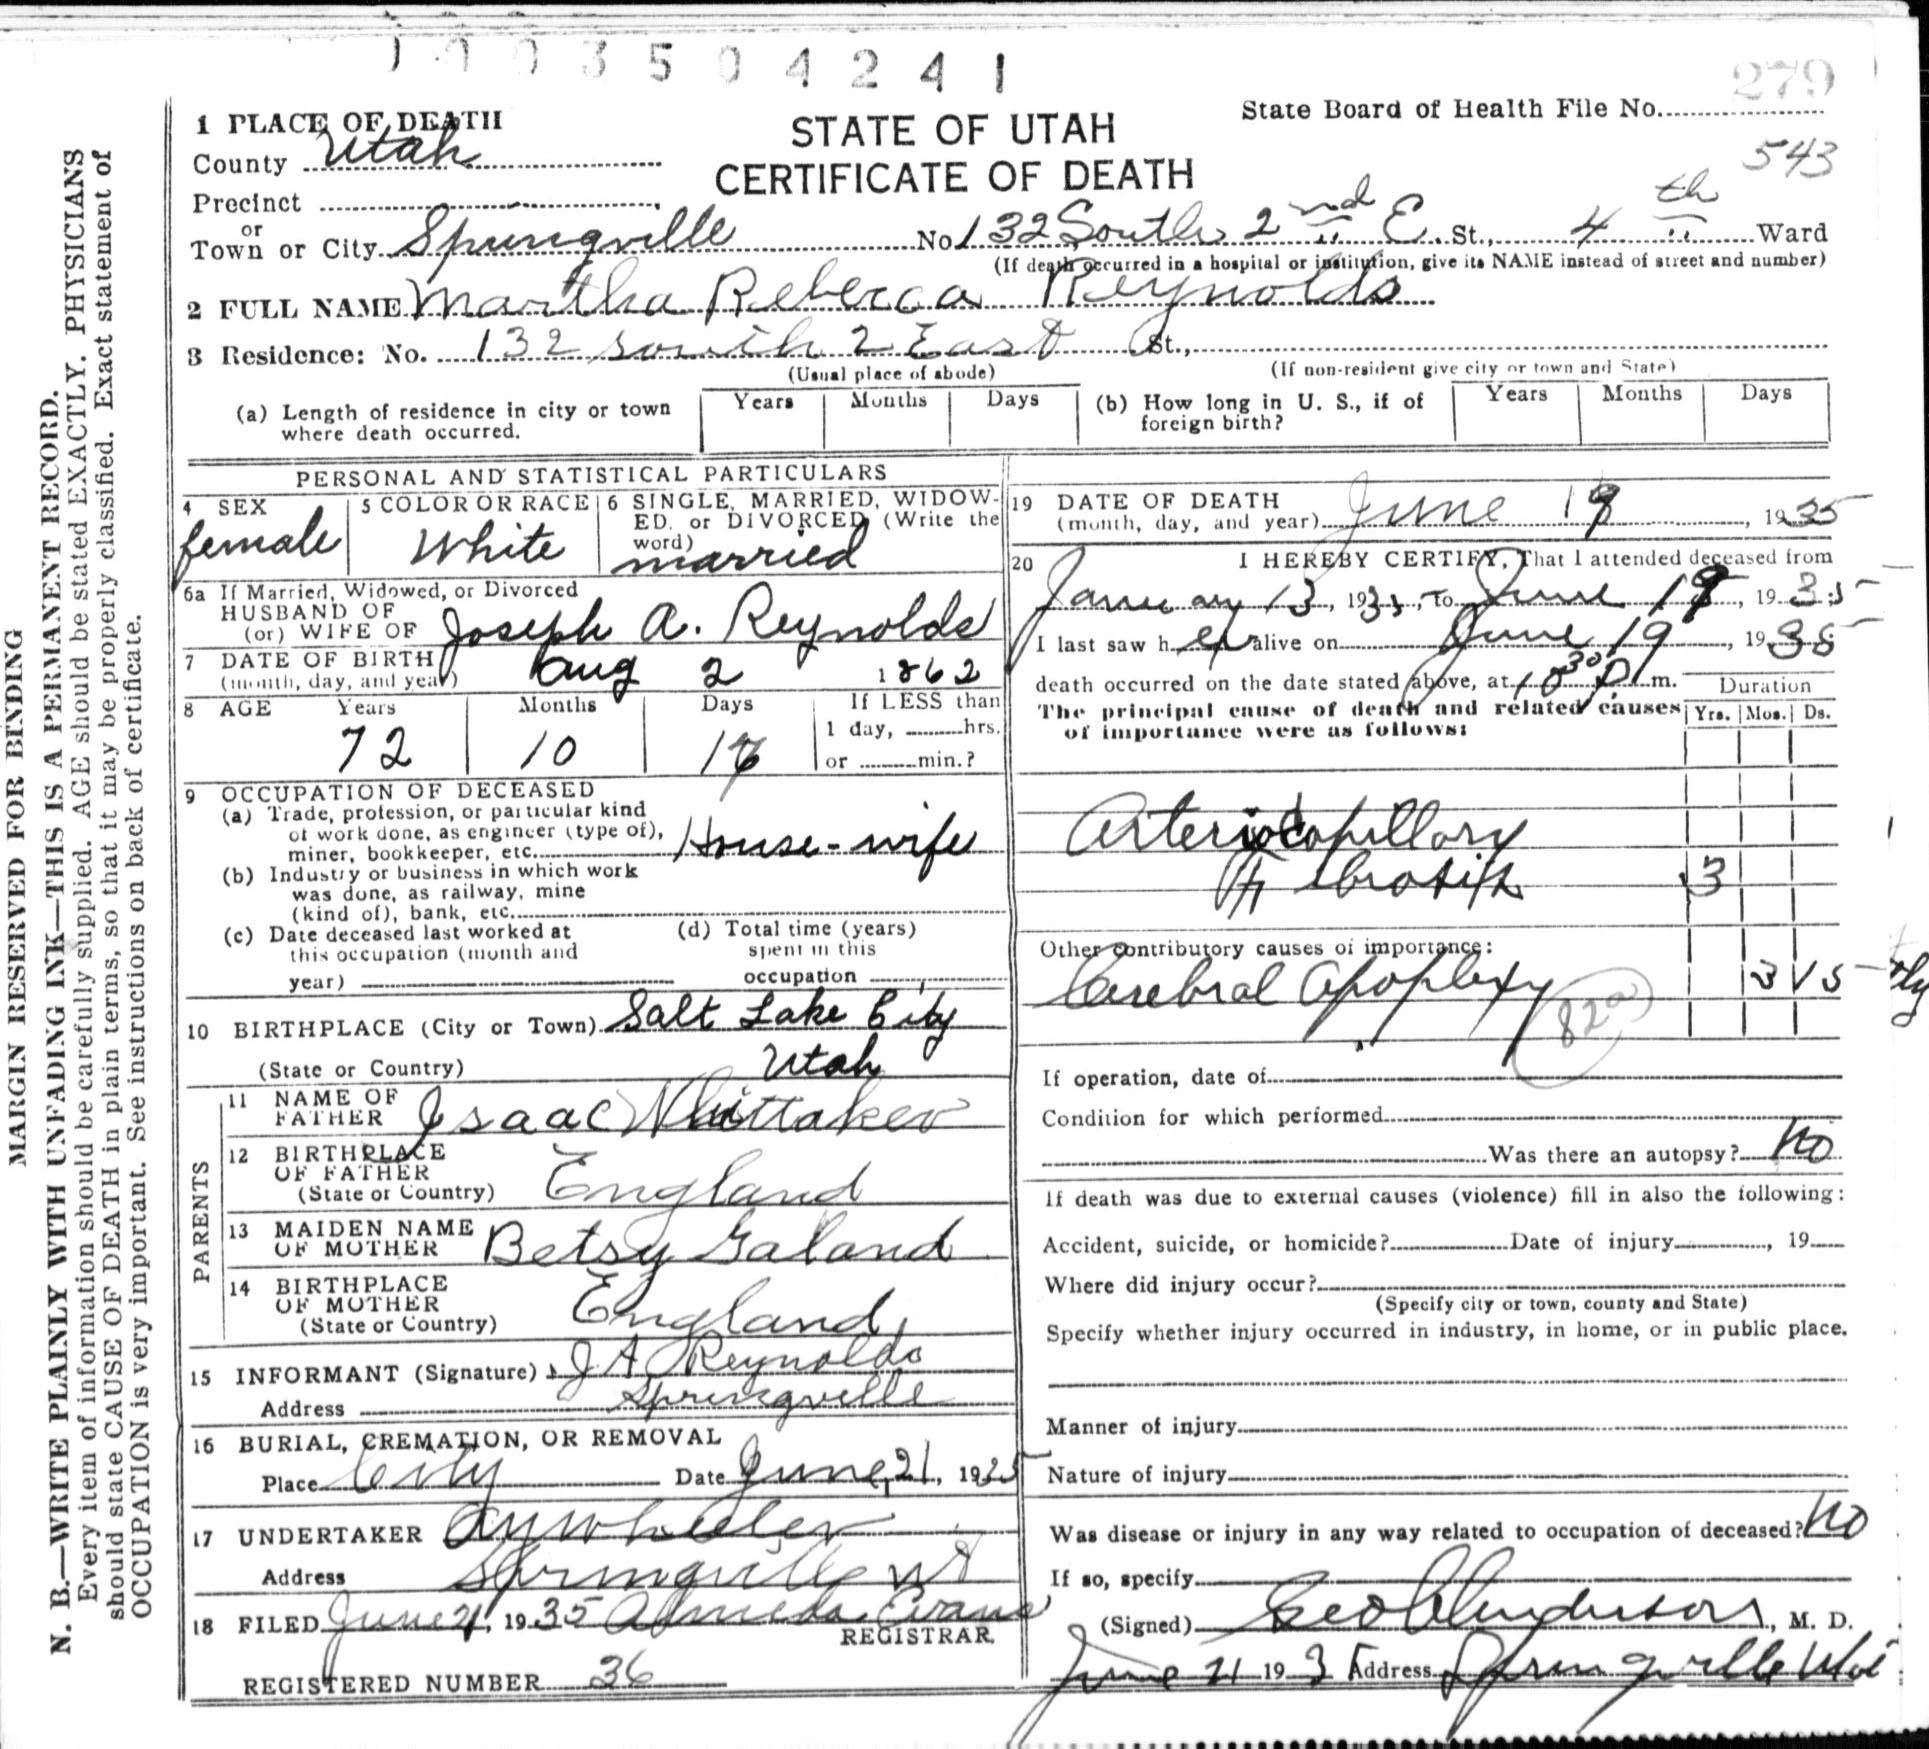 1003504241
279
1 PLACE OF DEATH
State Board of Health File No.
STATE OF UTAH
543
County Utah
CERTIFICATE OF DEATH
Precinct
or
Town or City Springville No 132 South 2nd E. St., 4th Ward
(If death occurred in a hospital or institution, give its NAME instead of street and number)
2 FULL NAME Martha Rebecca Reynolds
3 Residence: No. 132 south 2 East St.,
(Usual place of abode) (If non-resident give city or town and State)
(a) Length of residence in city or town where death occurred. Years Months Days (b) How long in U. S., if of foreign birth? Years Months Days
PERSONAL AND STATISTICAL PARTICULARS
4 SEX
female
5 COLOR OR RACE
White
6 SINGLE, MARRIED, WIDOW-
ED, or DIVORCED (Write the
word)
married
6a If Married, Widowed, or Divorced
HUSBAND OF
(or) WIFE OF Joseph A. Reynolds
7 DATE OF BIRTH
(month, day, and year) Aug 2 1862
8 AGE Years Months Days If LESS than
1 day, hrs.
72 10 17 or min.?
9 OCCUPATION OF DECEASED
(a) Trade, profession, or particular kind
of work done, as engineer (type of),
miner, bookkeeper, etc. House-wife
(b) Industry or business in which work
was done, as railway, mine
(kind of), bank, etc.
(c) Date deceased last worked at
this occupation (month and
year)
(d) Total time (years)
spent in this
occupation
10 BIRTHPLACE (City or Town) Salt Lake City
(State or Country) Utah
PARENTS
11 NAME OF
FATHER Isaac Whittaker
12 BIRTHPLACE
OF FATHER
(State or Country) England
13 MAIDEN NAME
OF MOTHER Betsy Galand
14 BIRTHPLACE
OF MOTHER
(State or Country) England
15 INFORMANT (Signature) J A Reynolds
Address Springville
16 BURIAL, CREMATION, OR REMOVAL
Place City Date June 21, 1935
17 UNDERTAKER A Y Wheeler
Address Springville Ut
18 FILED June 21, 1935 Almeda Evans
REGISTRAR.
REGISTERED NUMBER 36
19 DATE OF DEATH
(month, day, and year) June 19, 1935
20 I HEREBY CERTIFY, That I attended deceased from
January 13, 1935, to June 19, 1935
I last saw her alive on June 19, 1935
death occurred on the date stated above, at 10 30 P. m.
The principal cause of death and related causes
of importance were as follows:
Duration
Yrs. Mos. Ds.
Arteriocapillary
Fibrosis 3
Other contributory causes of importance:
Cerebral Apoplexy 3 15
82a
If operation, date of
Condition for which performed
Was there an autopsy? No
If death was due to external causes (violence) fill in also the following:
Accident, suicide, or homicide? Date of injury , 19
Where did injury occur?
(Specify city or town, county and State)
Specify whether injury occurred in industry, in home, or in public place.
Manner of injury
Nature of injury
Was disease or injury in any way related to occupation of deceased? No
If so, specify
(Signed) Geo Anderson, M. D.
June 21 1935 Address Springville Utah
MARGIN RESERVED FOR BINDING
N. B.—WRITE PLAINLY WITH UNFADING INK—THIS IS A PERMANENT RECORD.
Every item of information should be carefully supplied. AGE should be stated EXACTLY. PHYSICIANS
should state CAUSE OF DEATH in plain terms, so that it may be properly classified. Exact statement of
OCCUPATION is very important. See instructions on back of certificate.